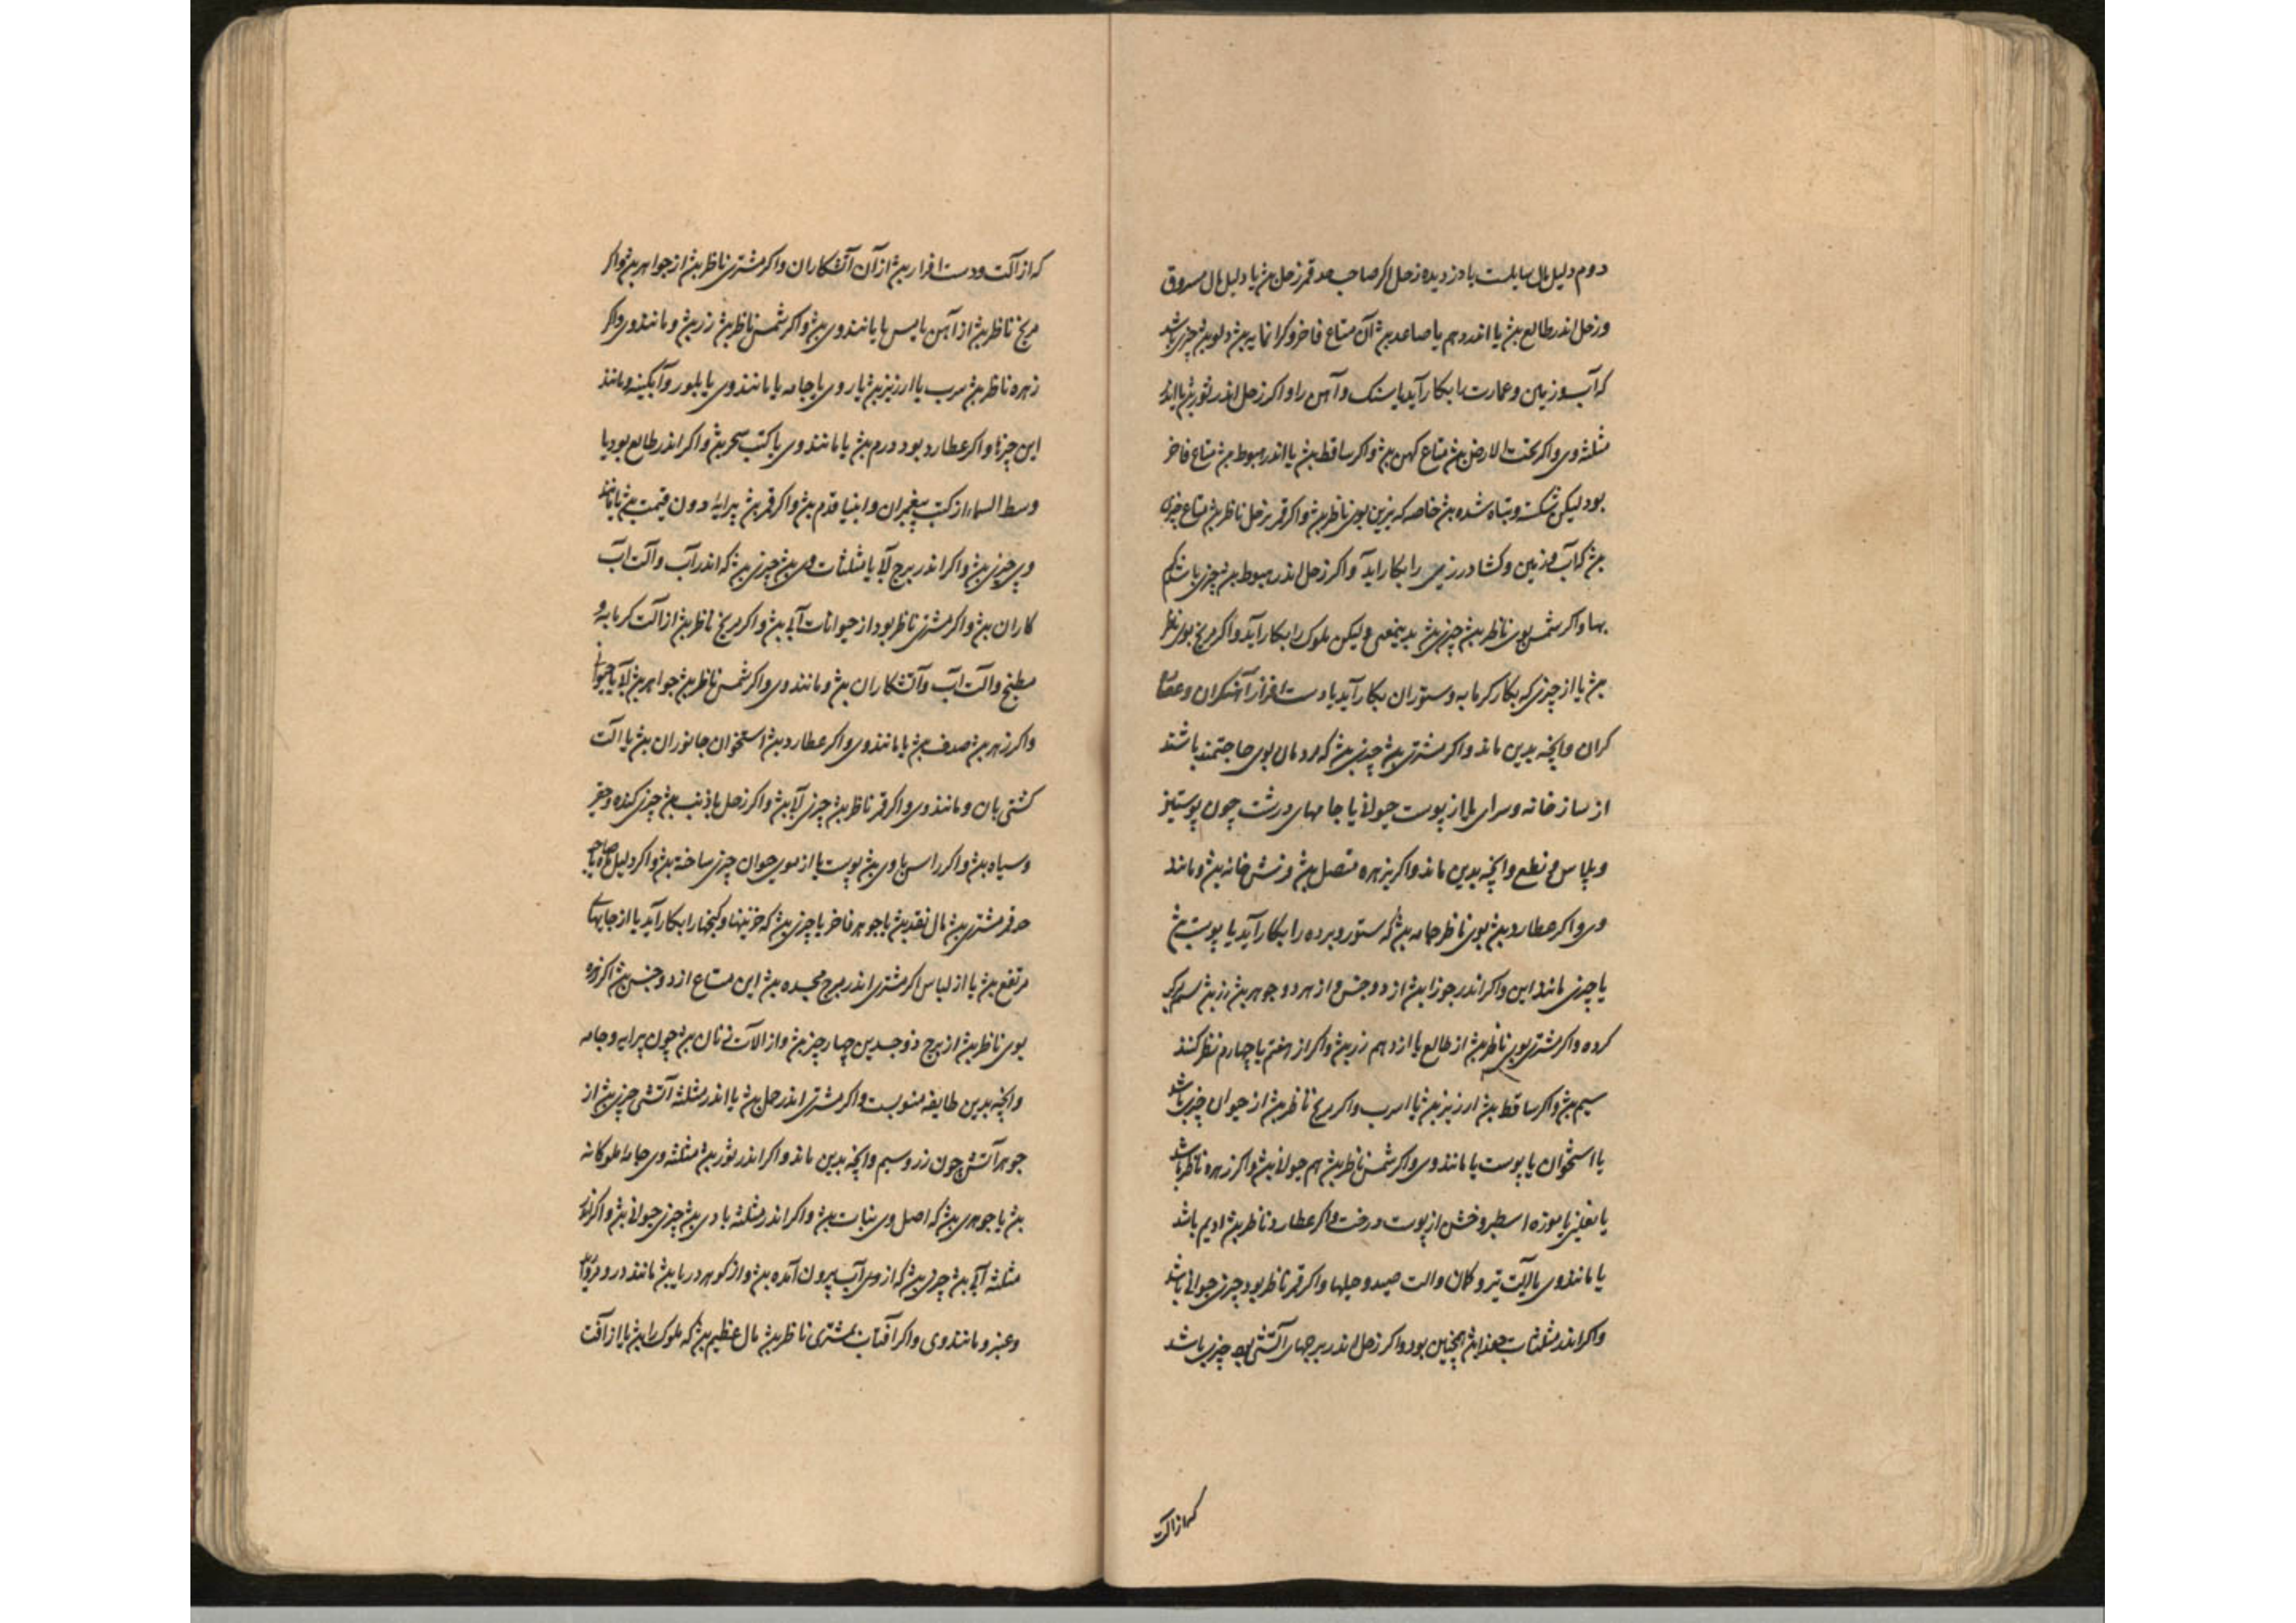 دوم دلیل مال سایلست یا دزدیده زحل اکر صاحب حد قمر زحل بود یا دلیل مال مسروق
وزحل اندر طالع بود یا اندر دهم یا صاعد بود آن متاع فاخر و کرانمایه بود ولون چیزی باشد
که آب و زمین و عمارت را بکار آید یا سنک و آهن را واکر زحل اندر ثور بود یا اندر
مثلثه وی واکر تحت الارض بود متاع کهن بود واکر ساقط بود یا اندر هبوط بود متاع فاخر
بود لیکن شکسته و تباه شده بود خاصه که بزمین بوی ناظر بود واکر قمر بزحل ناظر بود متاع چیزی
بود که آب و زمین و کشاورزی را بکار آید واکر زحل اندر هبوط بود چیزی باشد کم
بها واکر شمس بوی ناظر بود چیزی بود بدینمعنی ولیکن ملوک را بکار آید واکر مریخ بوی ناظر
بود یا از چیزی که بکار کرمابه و ستوران بکار آید یا دست افزار آهنکران و
کران وانچه بدین ماند واکر مشتری بود چیزی بود که مردمان بوی حاجتمند باشند
از ساز خانه و سرای یا از پوست حیوانی یا جامهای درشت چون پوستین
و پلاس و نطع وانچه بدین ماند واکر بزهره متصل بود فرش خانه بود و مانند
وی واکر عطارد بود بوی ناظر جامه بود که ستور و برده را بکار آید یا پوست بود
یا چیزی مانند این واکر اندر جوزا بود از دو جنس و از هر دو جوهر بود زر بود سیم
کرده واکر مشتری بوی ناظر بود از طالع یا از دهم زر بود واکر از هفتم یا چهارم نظر کنند
سیم بود واکر ساقط بود ارزیز بود یا اسرب واکر مریخ ناظر بود از حیوان چیزی باشد
یا استخوان یا پوست یا مانند وی واکر شمس ناظر بود هم حیوانی بود واکر زهره ناظر باشد
یا نعلین یا موزه اسطبر و خشن از پوست درخت واکر عطارد ناظر بود ادیم باشد
یا مانند وی یا آلت تیر و کمان والت صید و حیلها واکر قمر ناظر بود چیزی حیوانی باشد
واکر اندر مثلثات جوزا بود همچنین بود واکر زحل اندر برجهای آتشی بود چیزی باشد
که از آلت
که از آلت ودست افزار بود از آن آتشکاران واکر مشتری ناظر بود از جواهر بود واکر
مریخ ناظر بود از آهن یا مس یا مانند وی بود واکر شمس ناظر بود زر بود و مانند وی واکر
زهره ناظر بود سرب یا ارزیز بود یا روی یا جامه یا مانند وی یا بلور وآبکینه و مانند
این چیزها واکر عطارد بود درم بود یا مانند وی یا کتب سحر بود واکر اندر طالع بود یا
وسط السماء از کتب پیغمبران وانبیا قدم بود واکر قمر بود پیرایه دون قیمت بود یا مانند
وی چیزی بود واکر اندر برج آبی یا مثلثات وی بود چیزی بود که اندر آب وآلت آب
کاران بود واکر مشتری ناظر بود از حیوانات آبی بود واکر مریخ ناظر بود از آلت کرمابه و
مطبخ والت آب وآتشکاران بود و مانند وی واکر شمس ناظر بود جواهر بود آبی یا حیوانی
واکر زهره بود صدف بود یا مانند وی واکر عطارد بود استخوان جانوران بود یا آلت
کشتی بان و مانند وی واکر قمر ناظر بود چیزی آبی بود واکر زحل با ذنب بود چیزی کنده و حقیر
و سیاه بود واکر راس با وی بود پوست یا از موی حیوان چیزی ساخته بود واکر دلیل مال یا صاحب
حد قمر مشتری بود مال نقد بود یا جوهر فاخر یا چیزی بود که خزینها و کنجها را بکار آید یا از جایهای
مرتفع بود یا از لباس اکر مشتری اندر برج مجسده بود این متاع از دو جنس بود اکر زهره
بوی ناظر بود از برج ذو جسدین چهار چیز بود و از الآت زنان بود چون پیرایه و جامه
وانچه بدین طایفه منسوبست واکر مشتری اندر حمل بود یا اندر مثلثه آتشی چیزی بود از
جوهر آتش چون زر و سیم وانچه بدین ماند واکر اندر ثور بود مثلثه وی جامه ملوکانه
بود یا جوهری بود که اصل وی نبات بود واکر اندر مثلثه بادی بود چیزی حیوانی بود واکر اندر
مثلثه آبی بود چیزی بود که از وی آب بیرون آمده بود و از کوهر دریا بود مانند در و مروارید
وعنبر و مانند وی واکر آفتاب بمشتری ناظر بود مال عظیم بود که ملوک را بود یا از آفت